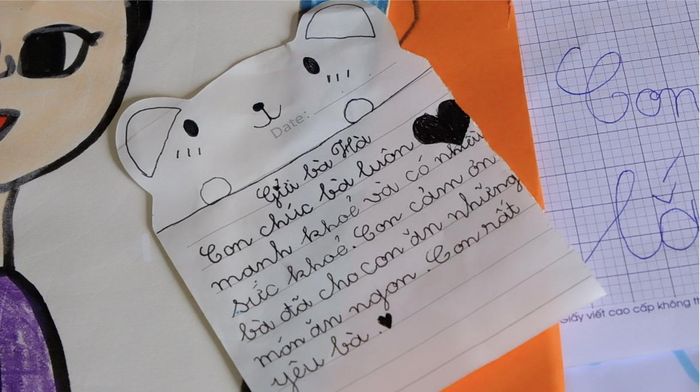 Date:
Gửi bà Hà
Con chúc bà luôn
mạnh khoẻ và có nhiều
sức khoẻ. Con cảm ơn
bà đã cho con ăn những
món ăn ngon. Con rất
yêu bà.
Con
Giấy viết cao cấp không